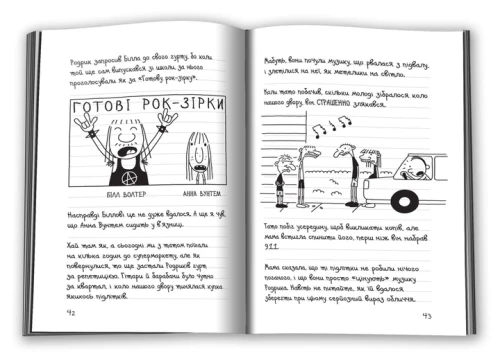 Родрик запросив Білла до свого гурту, бо коли
той ще там випускався зі школи, за нього
проголосували як за «Готову рок-зірку».
ГОТОВІ РОК-ЗІРКИ
БІЛЛ ВОЛТЕР
АННА ВУНТЕМ
Насправді Біллові це не дуже вдалося. А ще я чув,
що Анна Вунтем сидить у в'язниці.
Хай там як, а сьогодні ми з татом поїхали
на кілька годин до супермаркету, але як
повернулися, то ще застали Родриків гурт
за репетицією. Гітари й барабани було чутно
за квартал, і коло нашого двору тинялася купка
якихось підлітків.
42
Мабуть, вони почули музику, що рвалася з підвалу,
і злетілися на неї, як метелики на світло.
Коли тато побачив, скільки молоді зібралося коло
нашого двору, він СТРАШЕННО злякався.
Тато побіг усередину, щоб викликати копів, але
мама встигла спинити його, перш ніж він набрав
911.
Мама сказала, що ті підлітки не робили нічого
поганого, і що вони просто «цінують» музику
Родрика. Навіть не питайте, як їй вдалося
зберегти при цьому серйозний вираз обличчя.
43